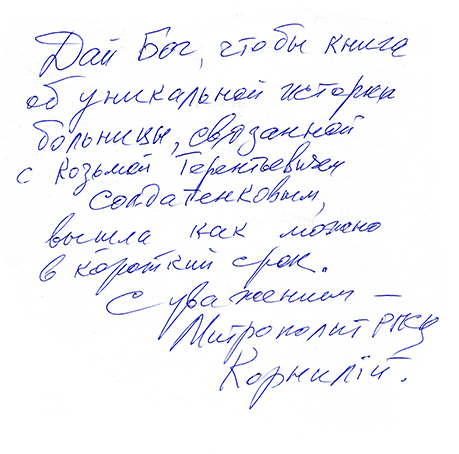 Дай Бог, чтобы книга
об уникальной истории
больницы, связанной
с Козьмой Терентьевичем
Солдатенковым,
вышла как можно
в короткий срок.
С уважением –
Митрополит РПСЦ
Корнилий.